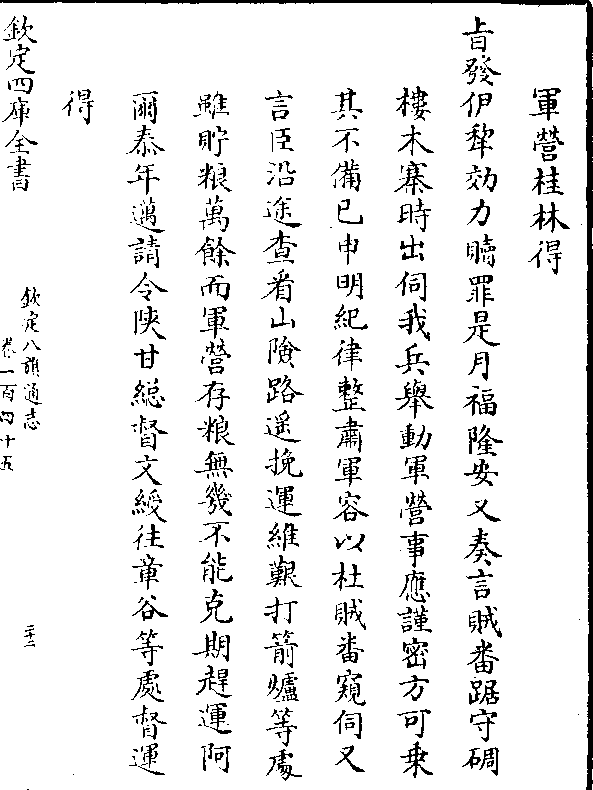 軍營桂林得
旨發伊犂効力贖罪是月福隆安又奏言賊番踞守碉
樓木寨時出伺我兵舉動軍營事應謹密方可乗
其不備已申明紀律整肅軍容以杜賊番窺伺又
言臣沿途查看山險路遥挽運維艱打箭爐等處
雖貯粮萬餘而軍營存粮無幾不能克期趕運阿
爾泰年邁請令陜甘總督文綬往章谷等處督運
得
欽定四庫全書
欽定八旗通志
卷一百四十五
二十二